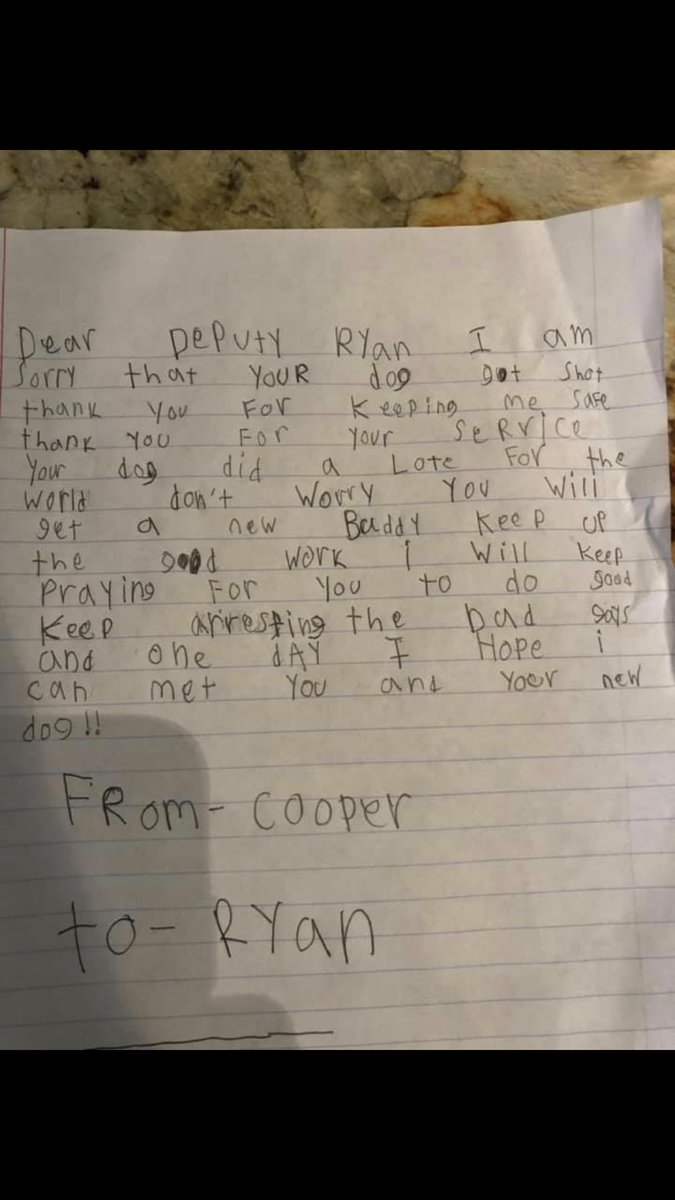 Dear DePUTY RYan I am
Sorry that YOUR dog got Shot
thank you FOR Keeping me safe
thank YOU FOR your SeRvice
Your dog did a Lote FOR the
world don't Worry You Will
get a new Buddy Keep up
the good work i Will Keep
Praying FOR You to do good
Keep arresting the bad guys
and one dAY I Hope i
can met You and Yoer new
dog!!
FRom- Cooper
to- RYan